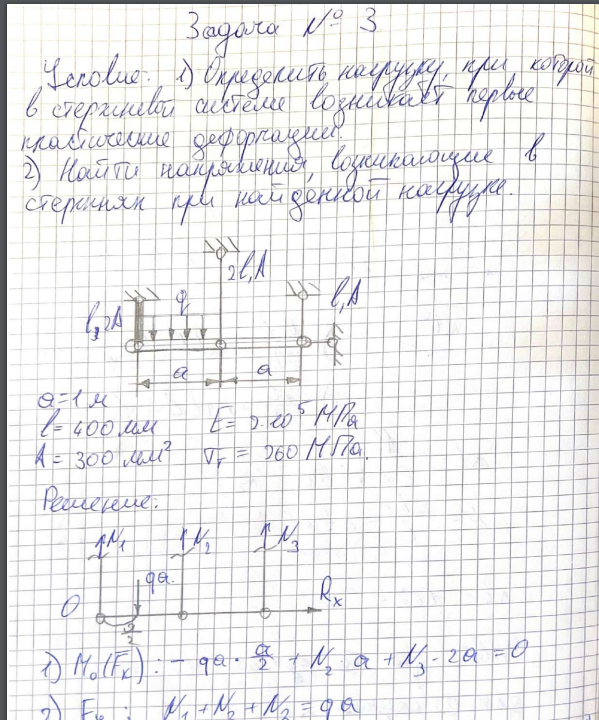 Задача № 3
Условие: 1) Определить нагрузку, при которой
в стержневой системе возникают первые
пластические деформации
2) Найти напряжения, возникающие в
стержнях при найденной нагрузке.
2l, A
l, 2A
q
l, A
a
a
a = 1 м
l = 400 мм E = 2·10⁵ МПа
A = 300 мм² σт = 260 МПа.
Решение:
N₁ N₂ N₃
qa
O
Rx
a/2
1) M₀(F̄ₖ): - qa · a/2 + N₂ · a + N₃ · 2a = 0
N₁ + N₂ + N₃ = qa